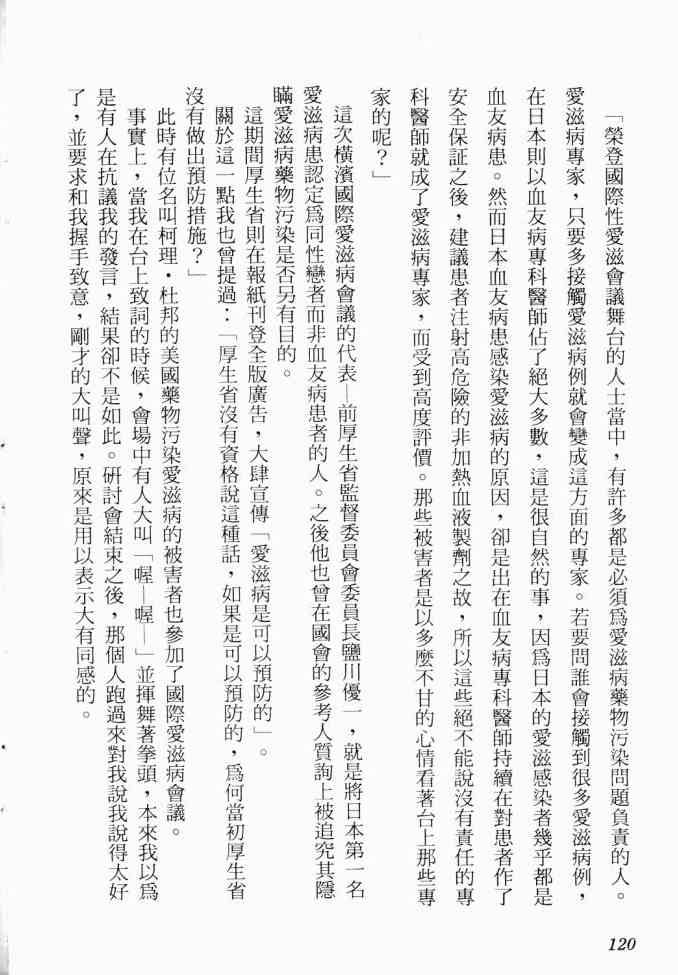 「榮登國際性愛滋會議舞台的人士當中，有許多都是必須爲愛滋病藥物污染問題負責的人。
愛滋病專家，只要多接觸愛滋病例就會變成這方面的專家。若要問誰會接觸到很多愛滋病例，
在日本則以血友病專科醫師佔了絕大多數，這是很自然的事，因爲日本的愛滋感染者幾乎都是
血友病患。然而日本血友病患感染愛滋病的原因，卻是出在血友病專科醫師持續在對患者作了
安全保証之後，建議患者注射高危險的非加熱血液製劑之故，所以這些絕不能說沒有責任的專
科醫師就成了愛滋病專家，而受到高度評價。那些被害者是以多麼不甘的心情看著台上那些專
家的呢？」
這次橫濱國際愛滋病會議的代表—前厚生省監督委員會委員長鹽川優一，就是將日本第一名
愛滋病患認定爲同性戀者而非血友病患者的人。之後他也曾在國會的參考人質詢上被追究其隱
瞞愛滋病藥物污染是否另有目的。
這期間厚生省則在報紙刊登全版廣告，大肆宣傳「愛滋病是可以預防的」。
關於這一點我也曾提過：「厚生省沒有資格說這種話，如果是可以預防的，爲何當初厚生省
沒有做出預防措施？」
此時有位名叫柯理・杜邦的美國藥物污染愛滋病的被害者也參加了國際愛滋病會議。
事實上，當我在台上致詞的時候，會場中有人大叫「喔—喔—」並揮舞著拳頭，本來我以爲
是有人在抗議我的發言，結果卻不是如此。研討會結束之後，那個人跑過來對我說我說得太好
了，並要求和我握手致意，剛才的大叫聲，原來是用以表示大有同感的。
120